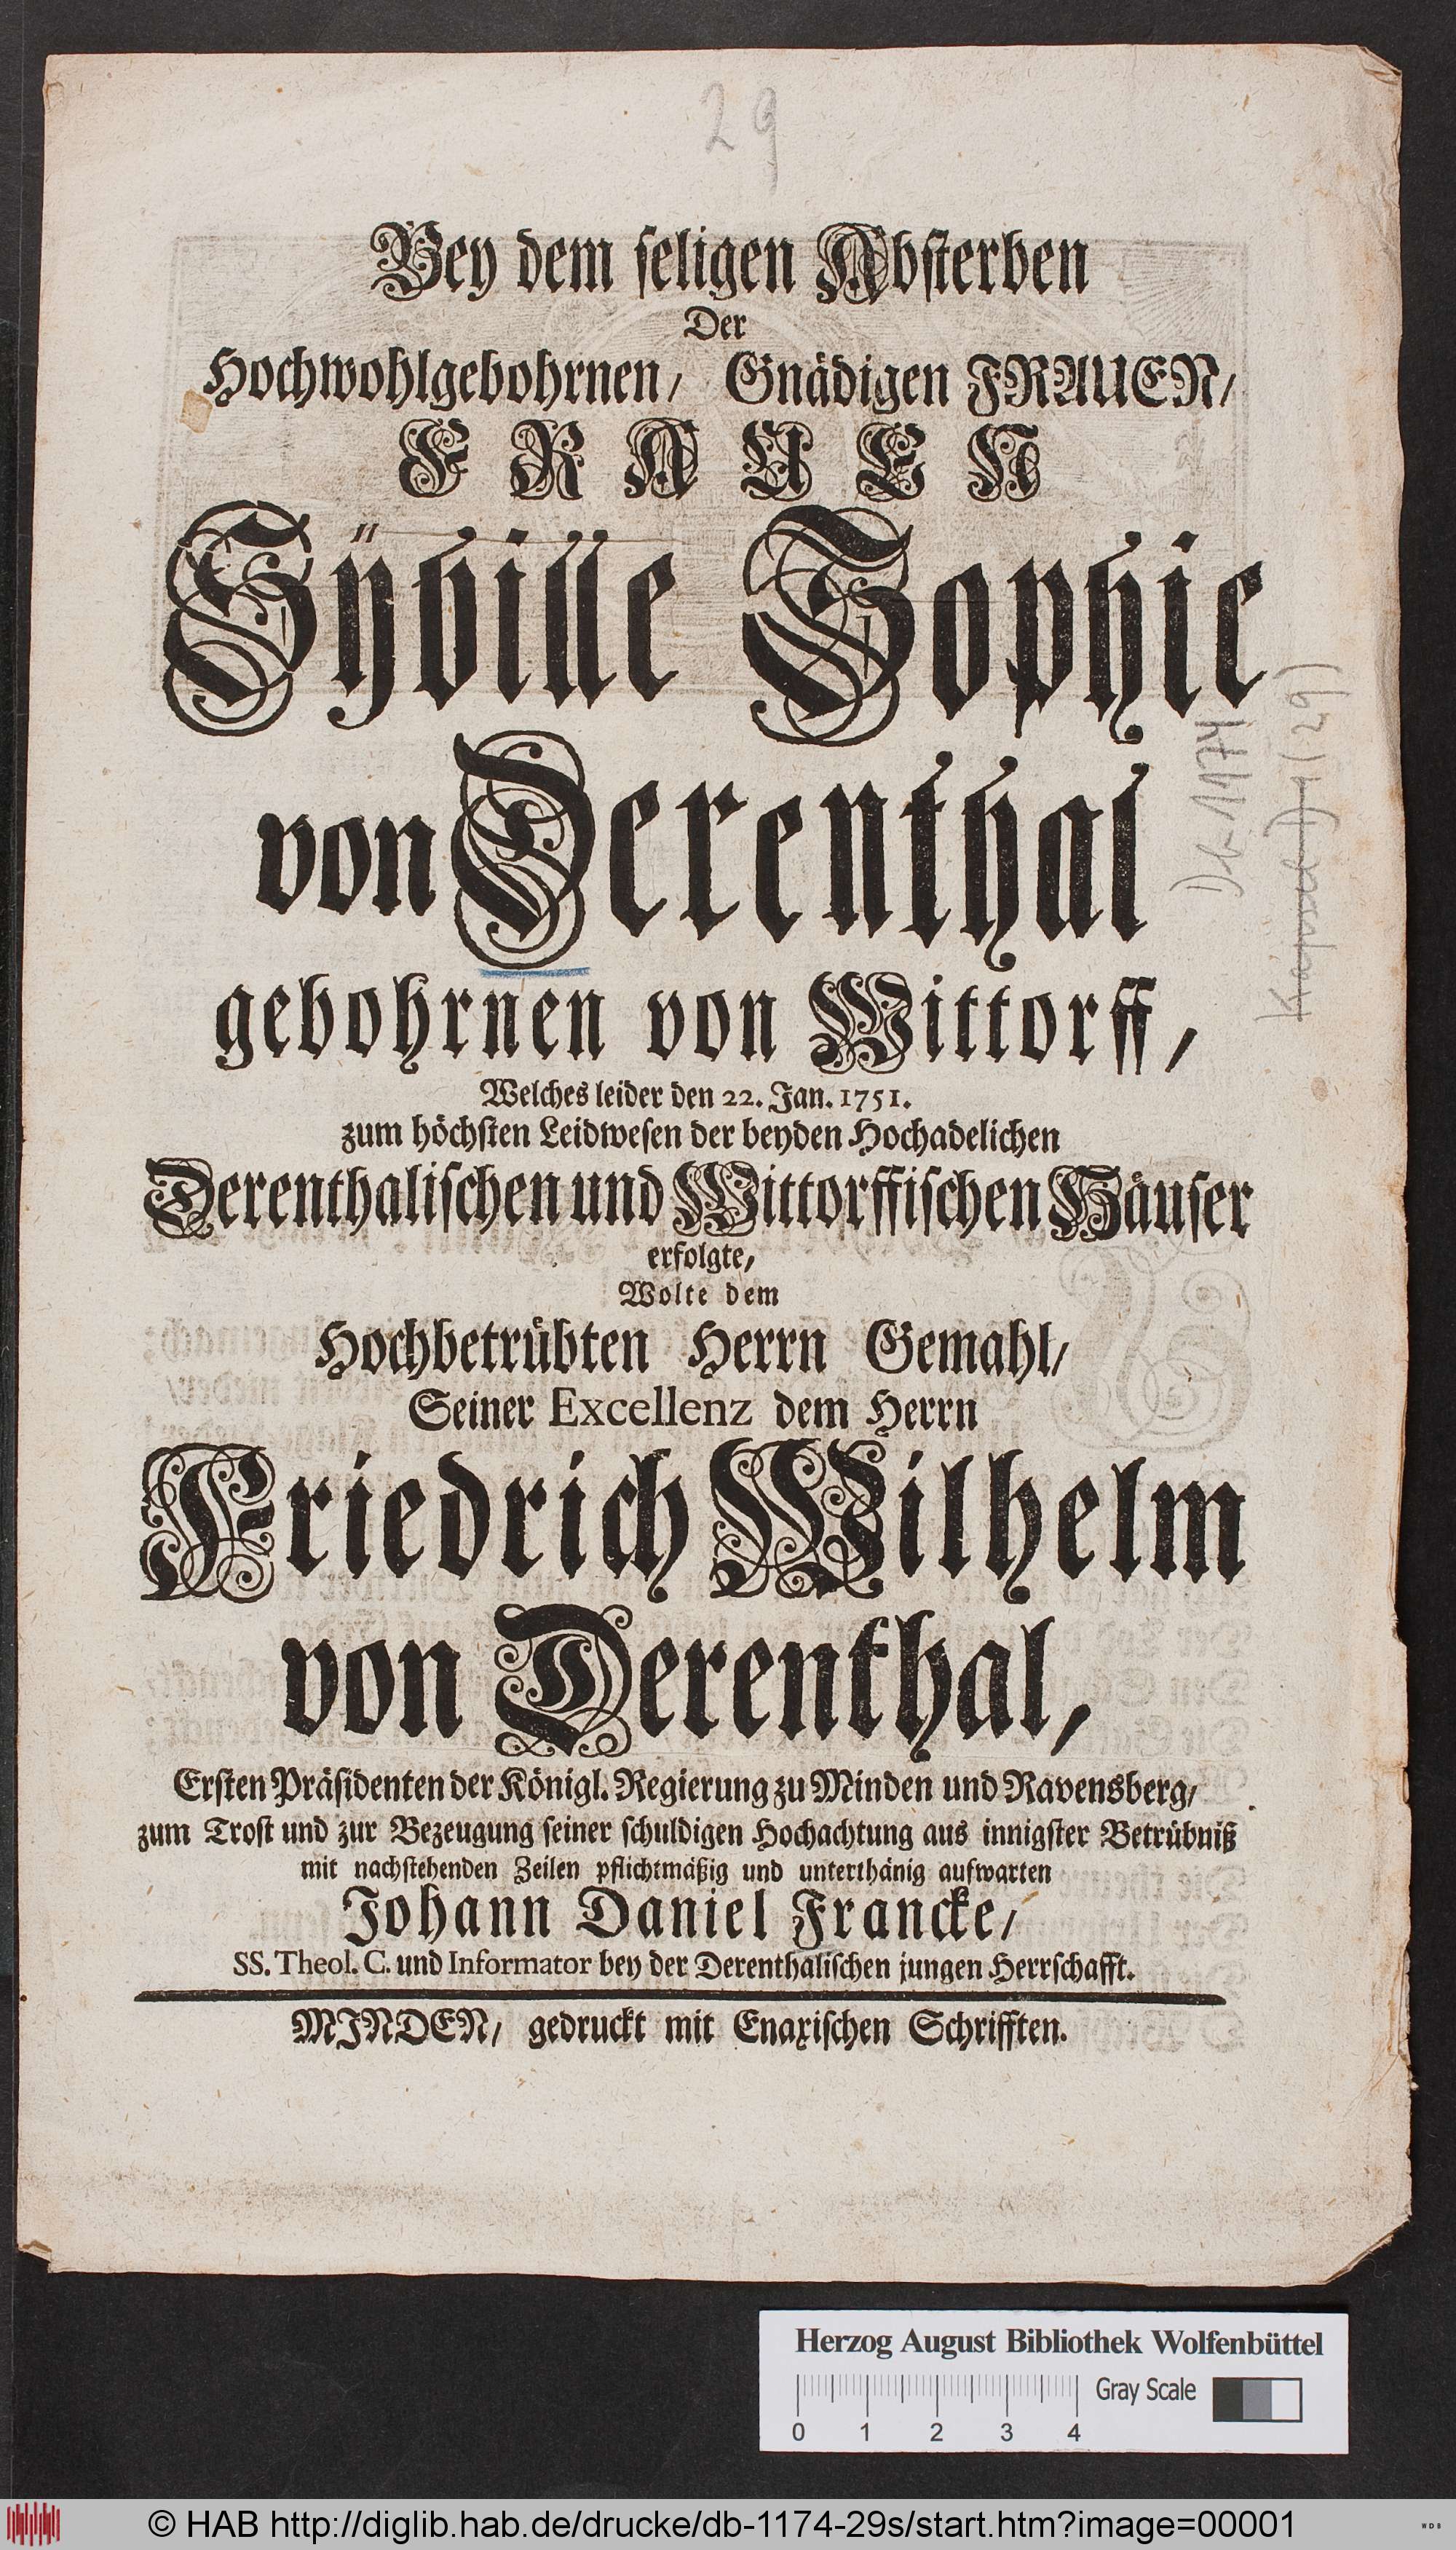 29
Bey dem seligen Absterben
Der
Hochwohlgebohrnen/ Gnädigen FRAUEN/
FRAUEN
Sÿbille Sophie
von Derenthal
gebohrnen von Wittorff,
Welches leider den 22. Jan. 1751.
zum höchsten Leidwesen der beyden Hochadelichen
Derenthalischen und Wittorffischen Häuser
erfolgte,
Wolte dem
Hochbetrübten Herrn Gemahl/
Seiner Excellenz dem Herrn
Friedrich Wilhelm
von Derenthal,
Ersten Präsidenten der Königl. Regierung zu Minden und Ravensberg/
zum Trost und zur Bezeugung seiner schuldigen Hochachtung aus innigster Betrübniß
mit nachstehenden Zeilen pflichtmäßig und unterthänig aufwarten
Johann Daniel Francke/
SS. Theol. C. und Informator bey der Derenthalischen jungen Herrschafft.
MINDEN/ gedruckt mit Enaxischen Schrifften.
Db 1174
(29)
Herzog August Bibliothek Wolfenbüttel
Gray Scale
0 1 2 3 4
© HAB http://diglib.hab.de/drucke/db-1174-29s/start.htm?image=00001